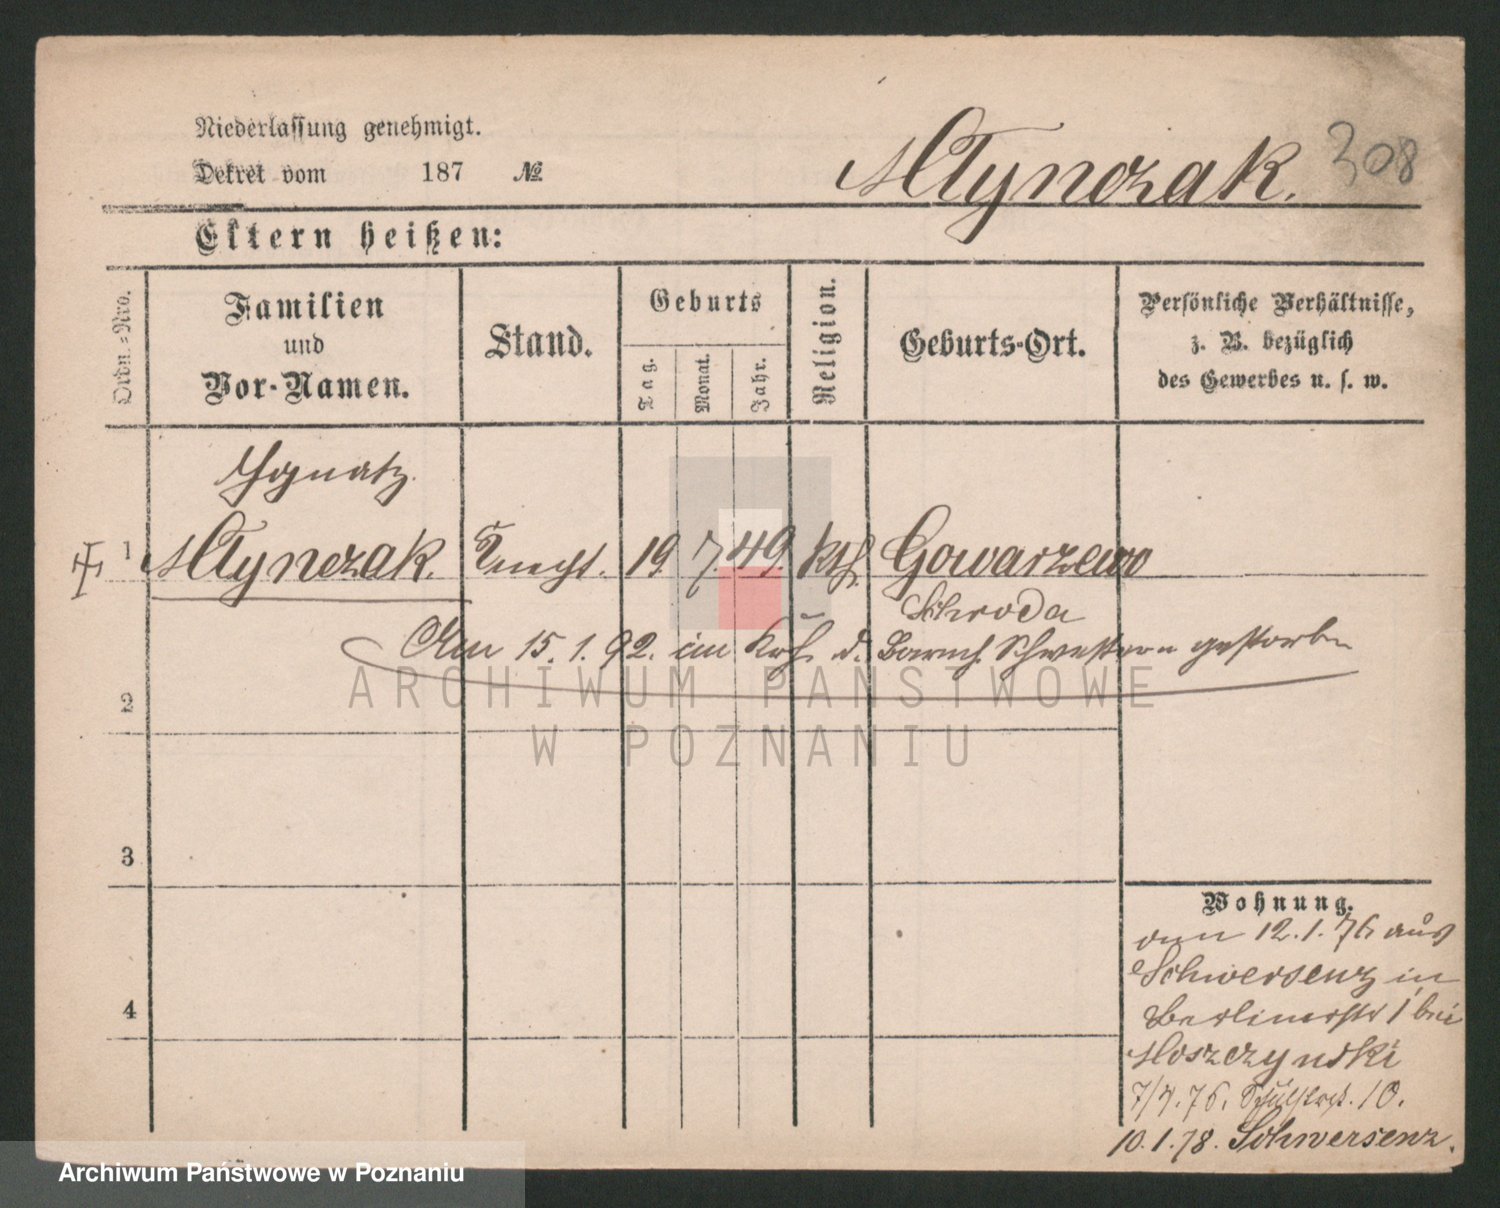 Niederlassung genehmigt.
Dekret vom 187 №
Młynczak. 308
Eltern heißen:
Ordn.-Nro.
Familien
und
Vor-Namen.
Stand.
Geburts
Tag.
Monat.
Jahr.
Religion.
Geburts-Ort.
Persönliche Verhältnisse,
z. B. bezüglich
des Gewerbes u. s. w.
Ignatz
1 Młynczak. Knecht. 19. 7. 49. kth. Gowarzewo
Schroda
Am 15.1.92. im Krh. d. Barmh. Schwestern gestorben
2
3
4
Wohnung.
vom 12.1.76 aus
Schwersenz in
Berlinerstr 1 bei
Moszczynski
7/4.76. 10.
10.1.78. Schwersenz.
ARCHIWUM PAŃSTWOWE
W POZNANIU
Archiwum Państwowe w Poznaniu